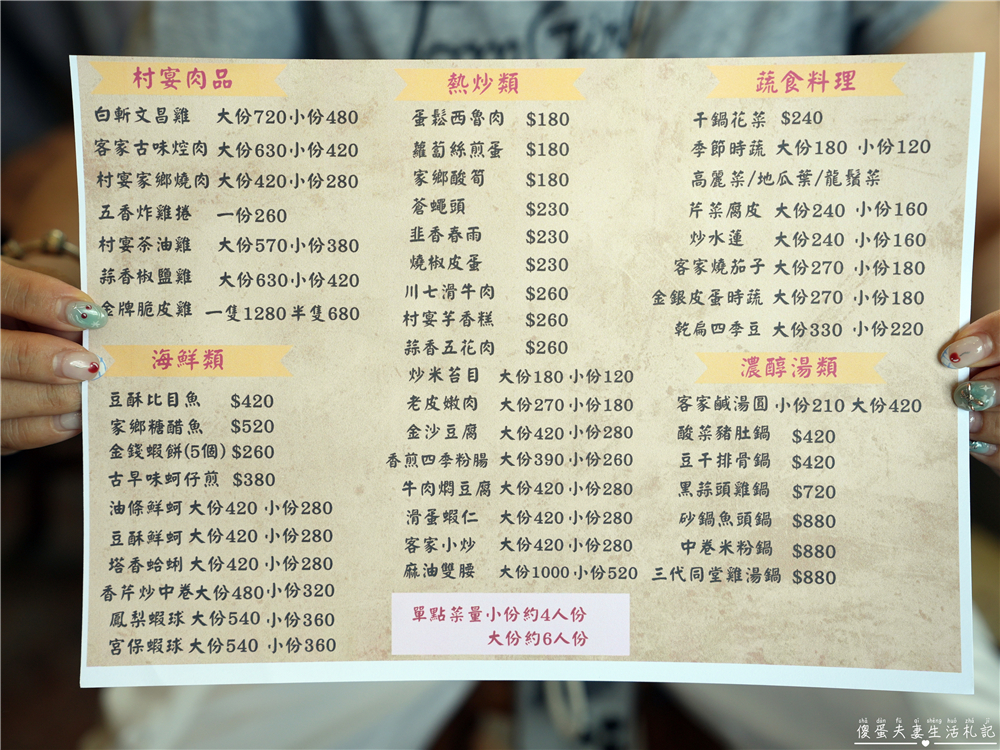 村宴肉品
白斬文昌雞 大份720小份480
客家古味焢肉 大份630小份420
村宴家鄉燒肉 大份420小份280
五香炸雞捲 一份260
村宴茶油雞 大份570小份380
蒜香椒鹽雞 大份630小份420
金牌脆皮雞 一隻1280半隻680
海鮮類
豆酥比目魚 $420
家鄉糖醋魚 $520
金錢蝦餅(5個) $260
古早味蚵仔煎 $380
油條鮮蚵 大份420 小份280
豆酥鮮蚵 大份420 小份280
塔香蛤蜊 大份420 小份280
香芹炒中卷大份480小份320
鳳梨蝦球 大份540 小份360
宮保蝦球 大份540 小份360
熱炒類
蛋鬆西魯肉 $180
蘿蔔絲煎蛋 $180
家鄉酸筍 $180
蒼蠅頭 $230
韭香春雨 $230
燒椒皮蛋 $230
川七滑牛肉 $260
村宴芋香糕 $260
蒜香五花肉 $260
炒米苔目 大份180 小份120
老皮嫩肉 大份270 小份180
金沙豆腐 大份420 小份280
香煎四季粉腸 大份390 小份260
牛肉燜豆腐 大份420 小份280
滑蛋蝦仁 大份420 小份280
客家小炒 大份420 小份280
麻油雙腰 大份1000 小份520
單點菜量小份約4人份
大份約6人份
蔬食料理
干鍋花菜 $240
季節時蔬 大份180 小份120
高麗菜/地瓜葉/龍鬚菜
芹菜腐皮 大份240 小份160
炒水蓮 大份240 小份160
客家燒茄子 大份270 小份180
金銀皮蛋時蔬 大份270 小份180
乾扁四季豆 大份330 小份220
濃醇湯類
客家鹹湯圓 小份210 大份420
酸菜豬肚鍋 $420
豆干排骨鍋 $420
黑蒜頭雞鍋 $720
砂鍋魚頭鍋 $880
中卷米粉鍋 $880
三代同堂雞湯鍋 $880
傻蛋夫妻生活札記